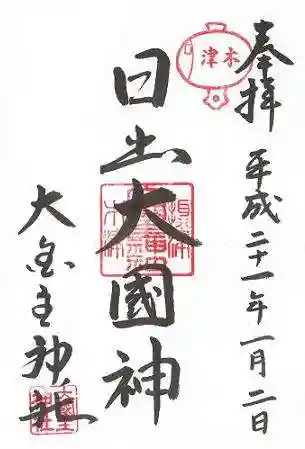 奉拝 平成二十一年一月二日
木津
日出大國神
大国主神社